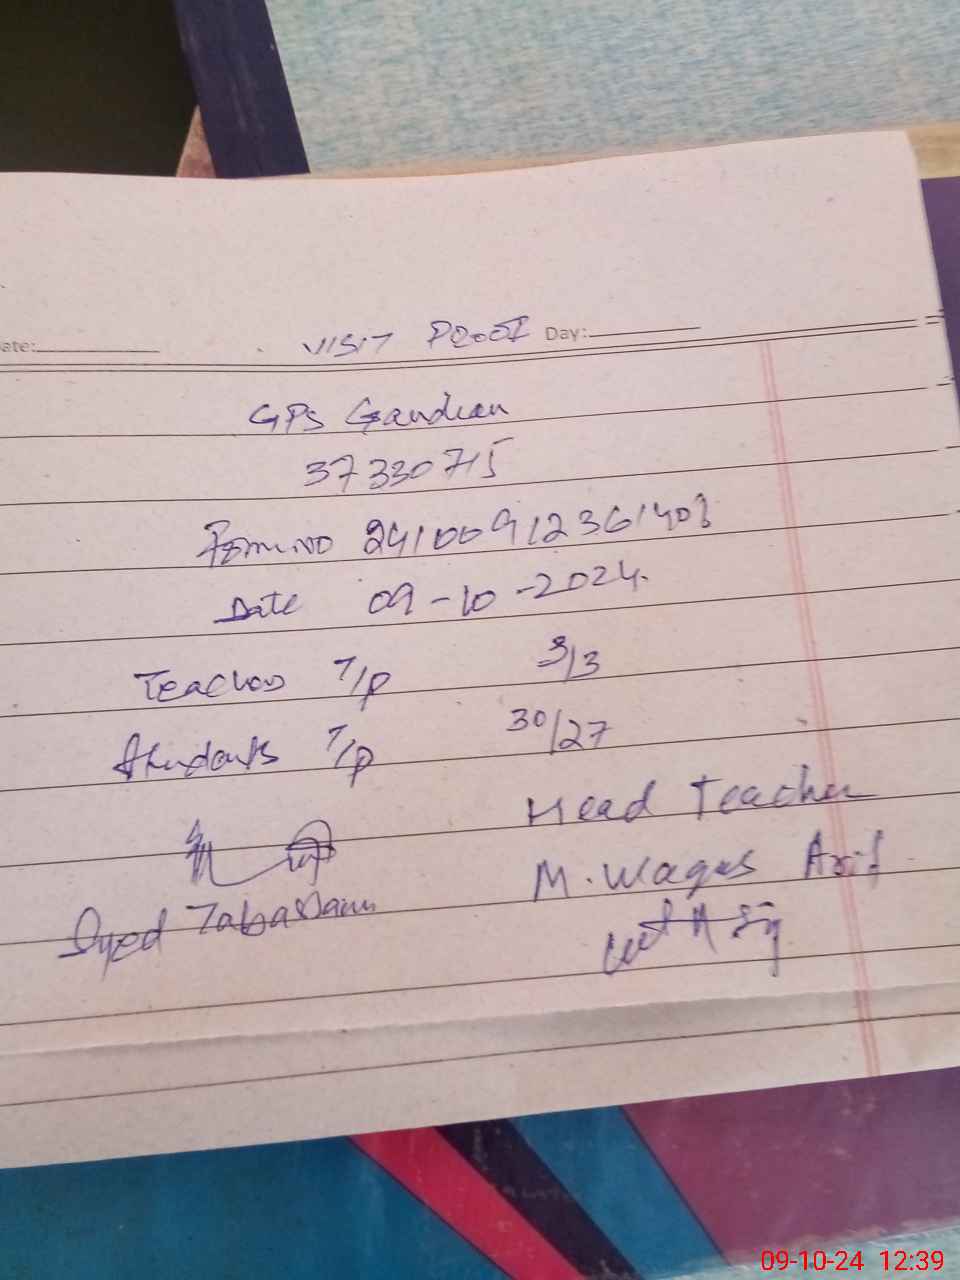 ate:
VISIT PROOF Day:
GPS Gandian
37330715
Form no 24100912361403
Date 09-10-2024.
Teachers T/P 3/3
Students T/P 30/27
Head Teacher
M. Waqas Arif
Syed Tabassam
09-10-24 12:39